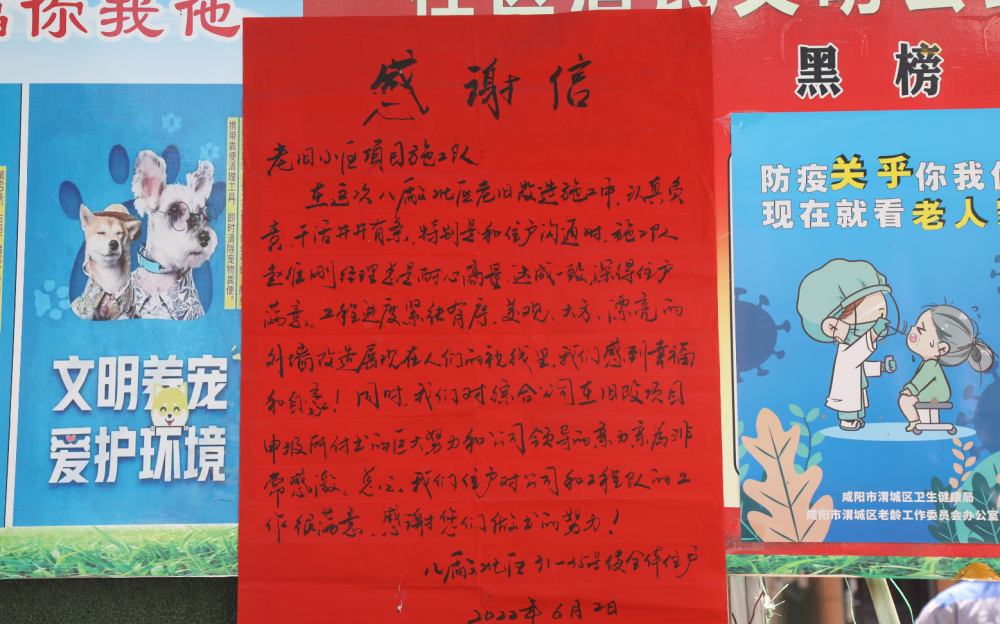 你我他
黑榜
携带粪便清理工具,即时清除宠物粪便。
文明养宠
爱护环境
感谢信
老旧小区项目施工队:
在这次八厰北区老旧改造施工中,认真负
责,干活井井有条,特别是和住户沟通时,施工队
赵维刚经理老是耐心商量,达成一致,深得住户
满意。工程进度紧张有序,美观、大方、漂亮的
外墙改造展现在人们的视线里,我们感到幸福
和自豪!同时,我们对综合公司在旧改项目
申报所付出的巨大努力和公司领导的亲力亲为非
常感激。总之,我们住户对公司和工程队的工
作很满意,感谢您们做出的努力!
八厰北区31-35号楼全体住户
2022年6月2日
防疫关乎你我
现在就看老人
咸阳市渭城区卫生健康局
咸阳市渭城区老龄工作委员会办公室